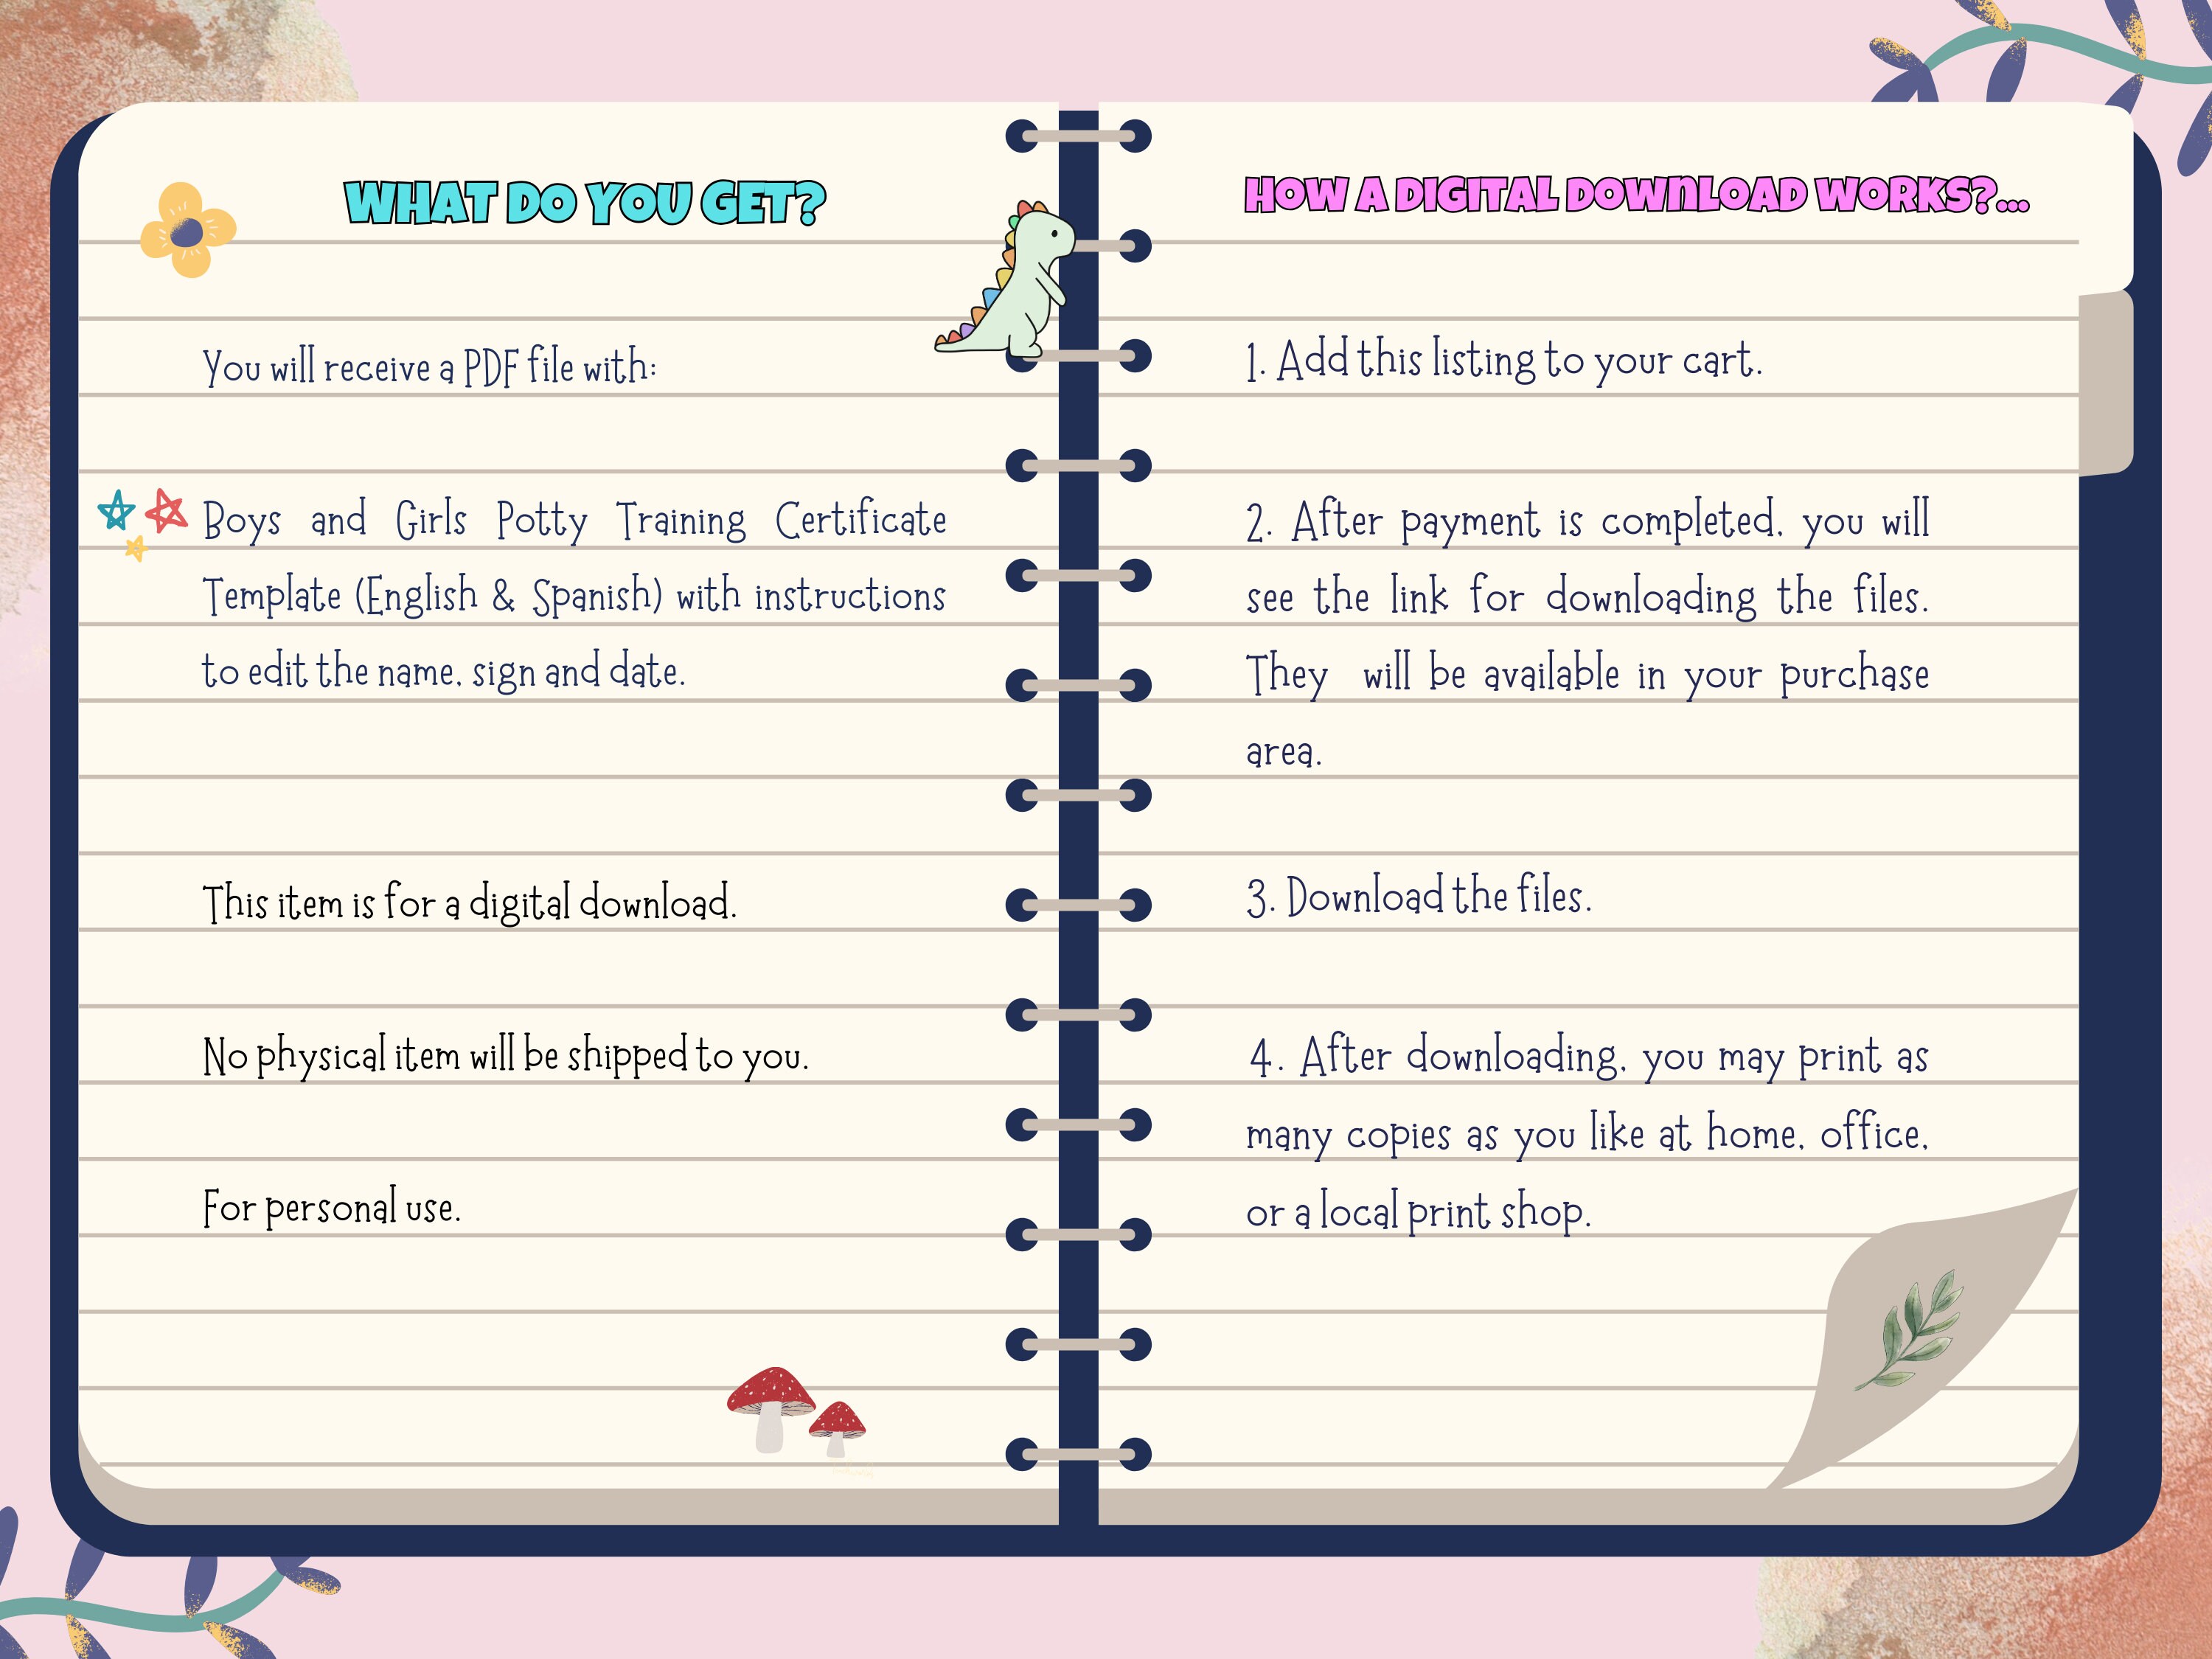 WHAT DO YOU GET?
You will receive a PDF file with:
Boys and Girls Potty Training Certificate
Template (English & Spanish) with instructions
to edit the name, sign and date.
This item is for a digital download.
No physical item will be shipped to you.
For personal use.
HOW A DIGITAL DOWNLOAD WORKS?...
1. Add this listing to your cart.
2. After payment is completed, you will
see the link for downloading the files.
They will be available in your purchase
area.
3. Download the files.
4. After downloading, you may print as
many copies as you like at home, office,
or a local print shop.